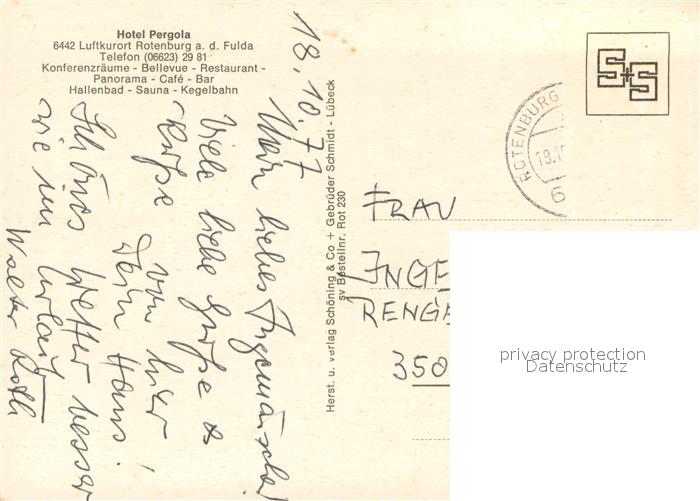 Hotel Pergola
6442 Luftkurort Rotenburg a. d. Fulda
Telefon (06623) 29 81
Konferenzräume - Bellevue - Restaurant -
Panorama - Café - Bar
Hallenbad - Sauna - Kegelbahn
18.10.77
Mein liebes Ingemäusche!
Viele liebe Grüße &
Küße von hier!
Dein Hans!
Schönes Wetter besser
wie im Urlaub
Walter
Herst. u. Verlag Schöning & Co + Gebrüder Schmidt - Lübeck
sv Bestellnr. Rot 230
S+S
ROTENBURG
19.1
6
FRAU
INGE
RENGE
350
privacy protection
Datenschutz